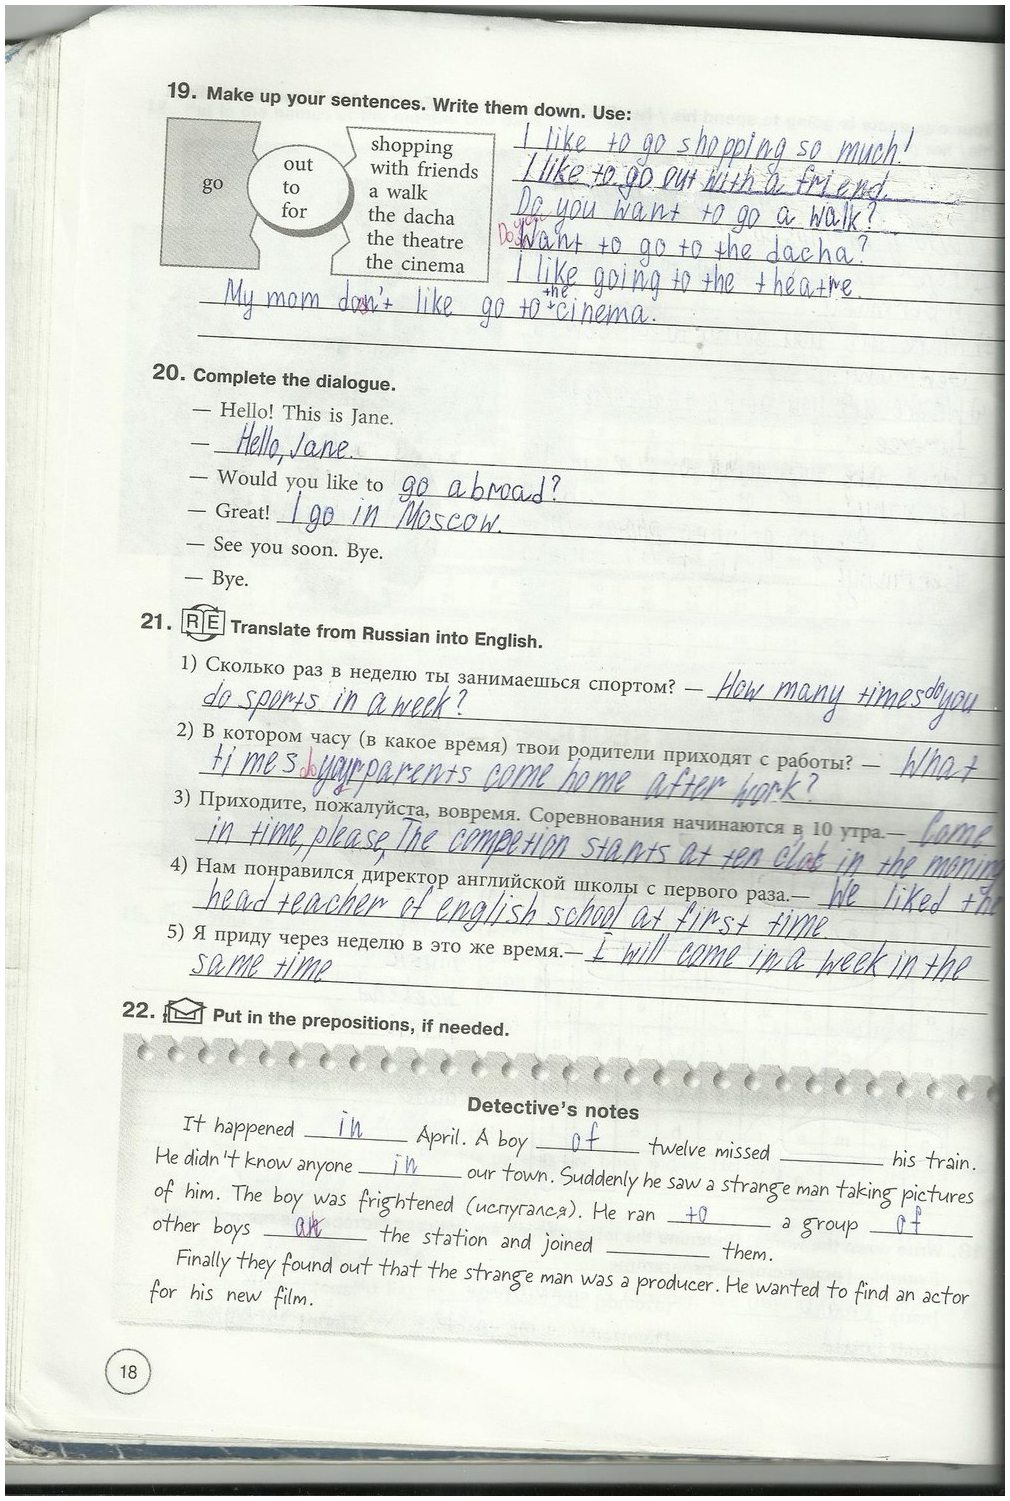 19. Make up your sentences. Write them down. Use:
go
out
to
for
shopping
with friends
a walk
the dacha
the theatre
the cinema
I like to go shopping so much!
I like to go out with a friend.
Do you want to go a walk?
Do you want to go to the dacha?
I like going to the theatre.
My mom don't like go to the cinema.
20. Complete the dialogue.
— Hello! This is Jane.
— Hello, Jane.
— Would you like to go abroad?
— Great! I go in Moscow.
— See you soon. Bye.
— Bye.
21. RE Translate from Russian into English.
1) Сколько раз в неделю ты занимаешься спортом? — How many times do you
do sports in a week?
2) В котором часу (в какое время) твои родители приходят с работы? — What
times do your parents come home after work?
3) Приходите, пожалуйста, вовремя. Соревнования начинаются в 10 утра.— Come
in time, please, The competion stants at ten in the moning
4) Нам понравился директор английской школы с первого раза.— We liked the
head teacher of english school at first time
5) Я приду через неделю в это же время.— I will come in a week in the
same time
22. Put in the prepositions, if needed.
Detective's notes
It happened in April. A boy of twelve missed his train.
He didn't know anyone in our town. Suddenly he saw a strange man taking pictures
of him. The boy was frightened (испугался). He ran to a group of
other boys at the station and joined them.
Finally they found out that the strange man was a producer. He wanted to find an actor
for his new film.
18